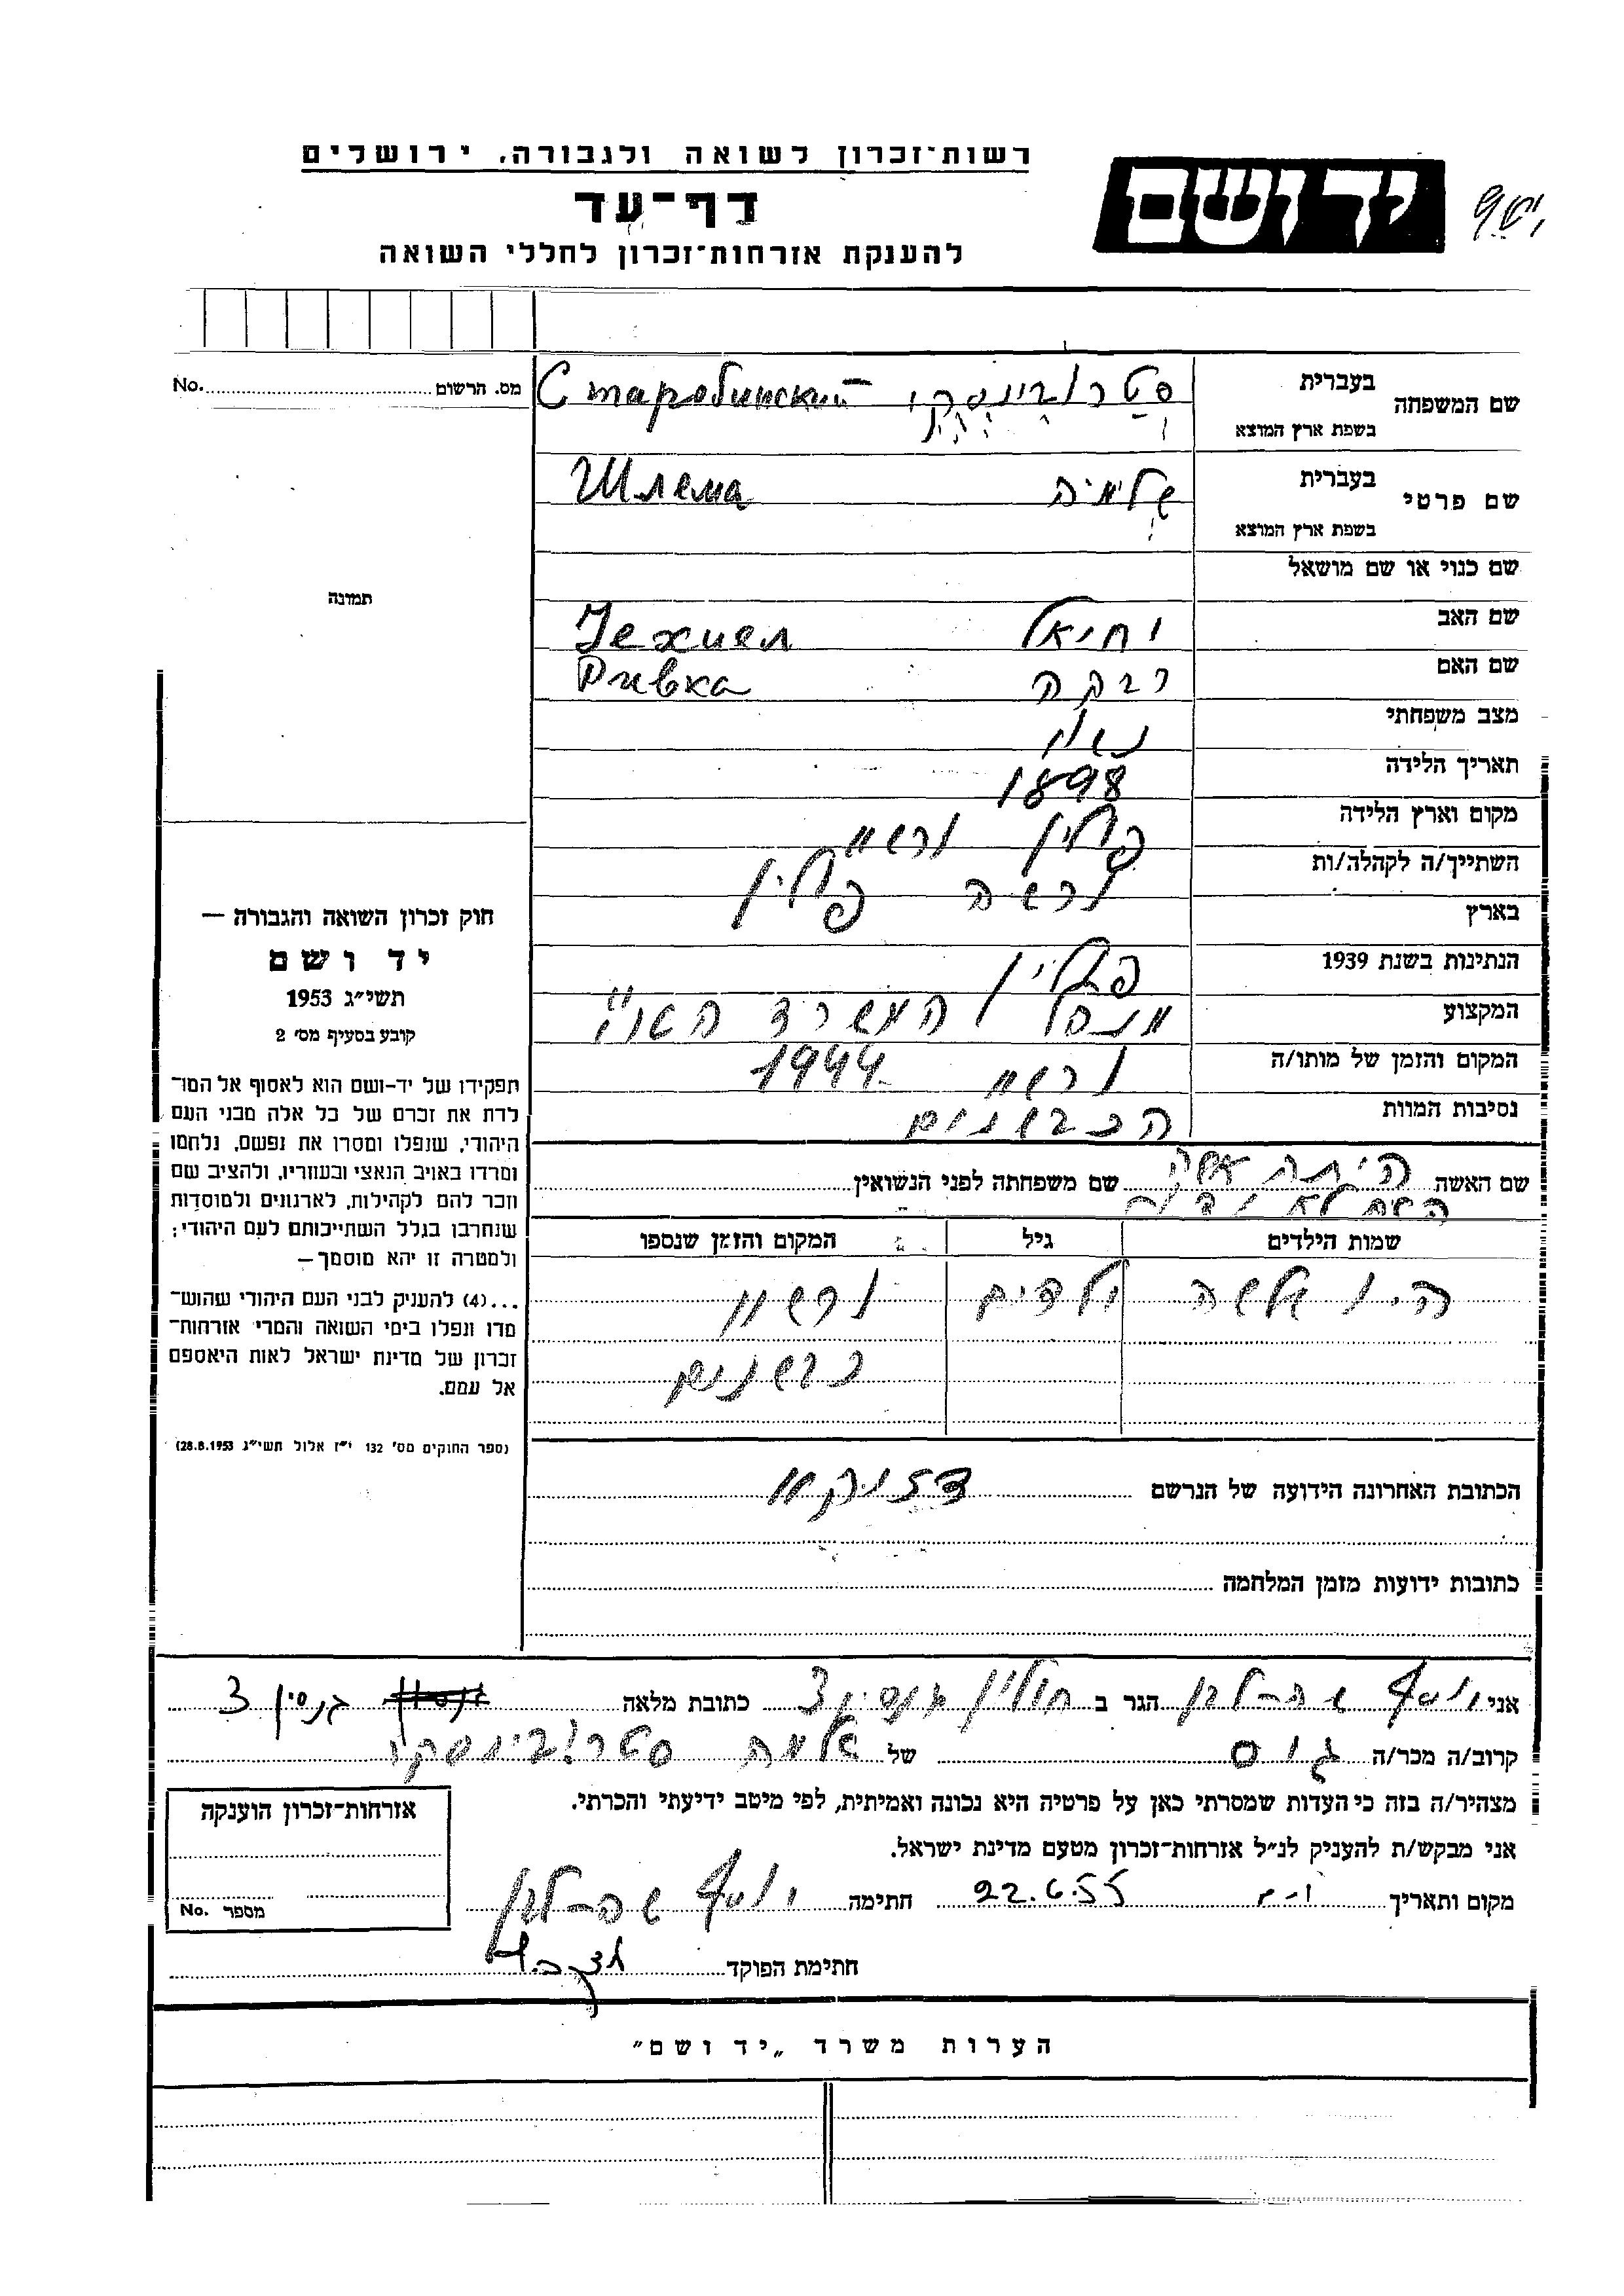 רשות־זכרון לשואה ולגבורה, ירושלים
יד ושם
דף־עד
להענקת אזרחות־זכרון לחללי השואה
שם המשפחה בעברית סטרובינסקי Старобинский
בשפת ארץ המוצא
שם פרטי בעברית שלימה Шлема
בשפת ארץ המוצא
שם כנוי או שם מושאל
שם האב יחיאל Iехиел
שם האם רבקה Ривка
מצב משפחתי נשוי
תאריך הלידה 1898
מקום וארץ הלידה פולין
השתייך/ה לקהלה/ות ורשה פולין
בארץ
הנתינות בשנת 1939 פולין
המקצוע מנהל המשרד
המקום והזמן של מותו/ה 1944
נסיבות המוות הכבשונים
שם האשה היתה אשה שם משפחתה לפני הנשואין
השם לא ידוע
שמות הילדים גיל המקום והזמן שנספו
היו שלשה ילדים
הכתובת האחרונה הידועה של הנרשם
כתובות ידועות מזמן המלחמה
מס. הרשום No.
תמונה
חוק זכרון השואה והגבורה —
יד ושם
תשי״ג 1953
קובע בסעיף מס׳ 2
תפקידו של יד-ושם הוא לאסוף אל המו־
לדת את זכרם של כל אלה מבני העם
היהודי, שנפלו ומסרו את נפשם, נלחמו
ומרדו באויב הנאצי ובעוזריו, ולהציב שם
וזכר להם לקהילות, לארגונים ולמוסדות
שנחרבו בגלל השתייכותם לעם היהודי;
ולמטרה זו יהא מוסמך—
...(4) להעניק לבני העם היהודי שהוש־
מדו ונפלו בימי השואה והמרי אזרחות־
זכרון של מדינת ישראל לאות היאספם
אל עמם.
(ספר החוקים מס׳ 132 י״ז אלול תשי״ג 28.8.1953)
אני יוסף הגר ב חולון 3 כתובת מלאה 3
קרוב/ה מכר/ה גיס של שלמה סטרובינסקי
מצהיר/ה בזה כי העדות שמסרתי כאן על פרטיה היא נכונה ואמיתית, לפי מיטב ידיעתי והכרתי.
אני מבקש/ת להעניק לנ״ל אזרחות־זכרון מטעם מדינת ישראל.
מקום ותאריך 22.6.55 חתימה יוסף
חתימת הפוקד
אזרחות־זכרון הוענקה
מספר No.
הערות משרד „יד ושם״